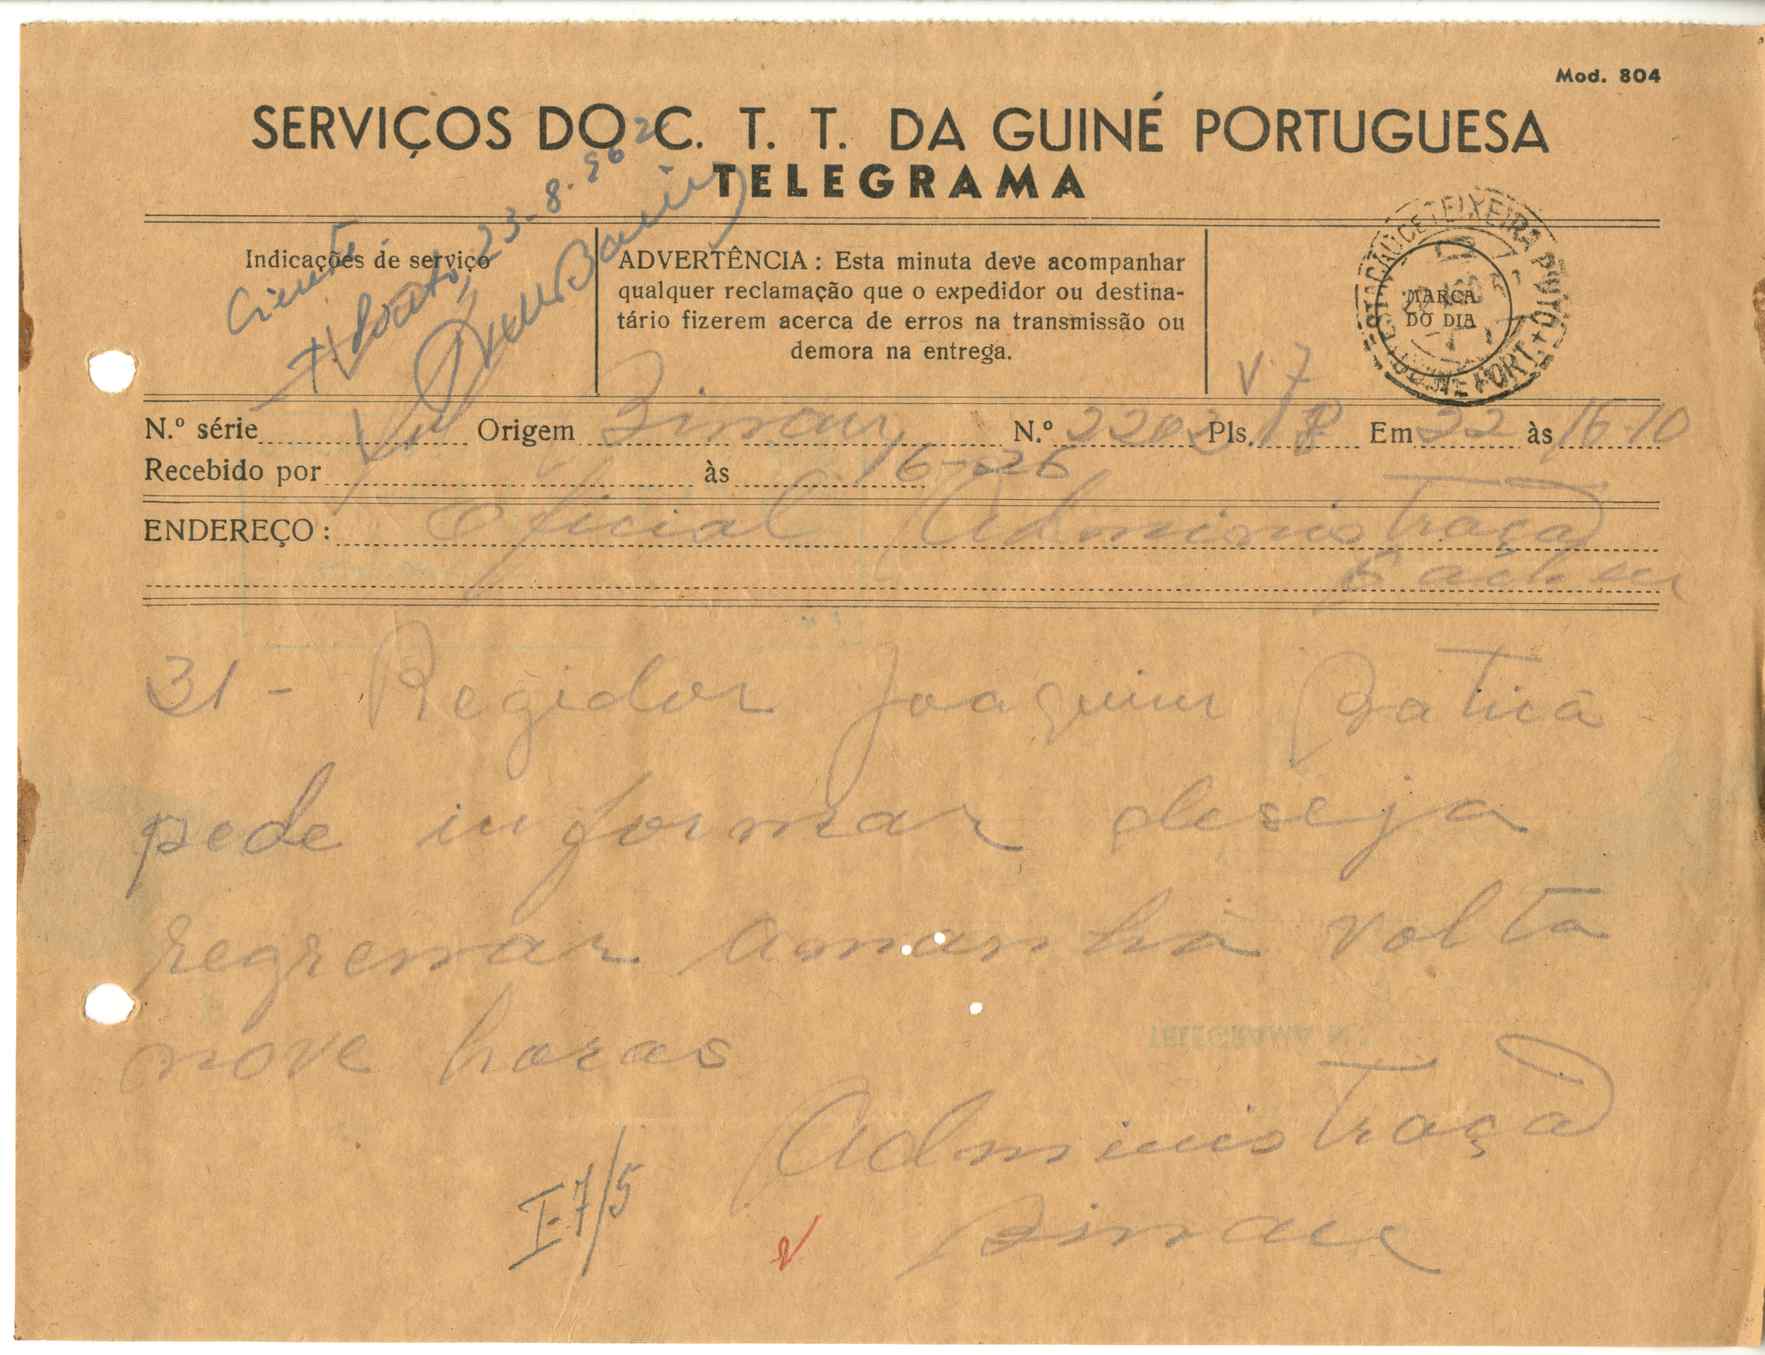 Mod. 804
SERVIÇOS DO C. T. T. DA GUINÉ PORTUGUESA
TELEGRAMA
Indicações de serviço
Ciente
23-8-962
ADVERTÊNCIA : Esta minuta deve acompanhar
qualquer reclamação que o expedidor ou destina-
tário fizerem acerca de erros na transmissão ou
demora na entrega.
MARCA
DO DIA
TEIXEIRA PINTO
V. 7
N.º série Origem Binar N.º 2202 Pls. 18 Em 22 às 16-10
Recebido por às 16-26
ENDEREÇO : Oficial Administração
Cacheu
31 - Regidor Joaquim Baticã
pede informar deseja
regressar amanhã volta
nove horas
Administração
Binar
I-7/5
TELEGRAMA N.